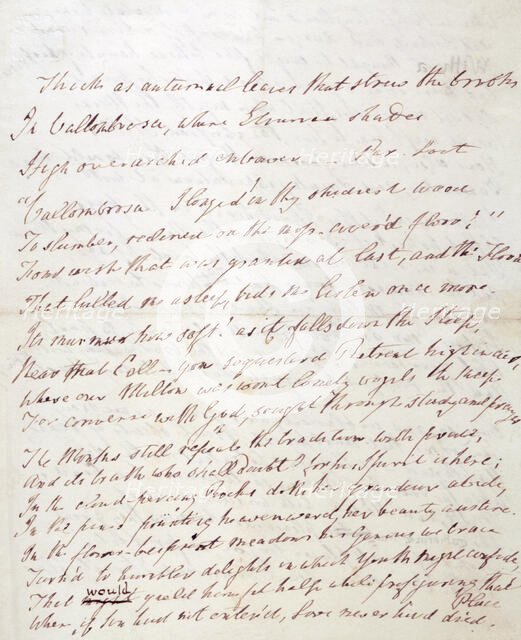 Thick as autumnal leaves that strew the brooks
In Vallombrosa, where Etrurian shades
High overarch'd embower. Par. Lost
"Vallombrosa I longed in thy shadiest wood
To slumber, reclined on the moss-cover'd floor!"
Fond wish that was granted at last, and the Flood
That lulled me asleep, bids me listen once more.
Its murmur how soft! as it falls down the Steep,
Near that Cell — yon sequestered Retreat high in air,
Where our Milton was wont lonely vigils to keep
For converse with God, sought through study and prayer.
The Monks still repeat the tradition with pride,
And its truth who shall doubt? for his Spirit is here;
In the cloud-piercing Rocks doth her grandeur abide,
In the pines pointing heavenward her beauty austere.
In the flower-besprent meadows his Genius we trace
Turn'd to humbler delights in which Youth might confide,
That would yield him fit help while prefiguring that Place
Where, if Sin had not entered, Love never had died.
Heritage
Heritage
Heritage
Heritage